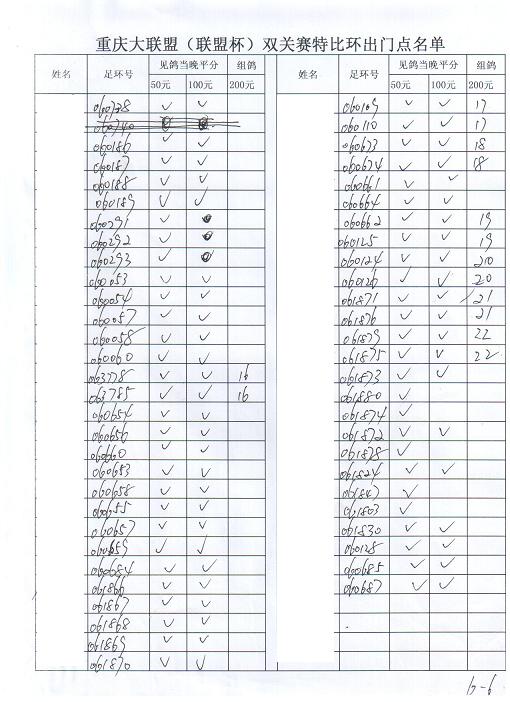 重庆大联盟（联盟杯）双关赛特比环出门点名单
姓名 足环号 见鸽当晚平分 组鸽 姓名 足环号 见鸽当晚平分 组鸽
50元 100元 200元 50元 100元 200元
060728 ✓ ✓
060740
060186 ✓ ✓
060187 ✓ ✓
060188 ✓ ✓
060189 ✓ ✓
060291 ✓
060292 ✓
060293 ✓
060053 ✓ ✓
060054 ✓ ✓
060057 ✓ ✓
060058 ✓ ✓
060060 ✓ ✓
063778 ✓ ✓ 16
063785 ✓ ✓ 16
060654 ✓ ✓
060656 ✓ ✓
060660 ✓ ✓
060653 ✓ ✓
060658 ✓ ✓
060655 ✓ ✓
060657 ✓ ✓
060659 ✓ ✓
060084 ✓ ✓
061866 ✓ ✓
061867 ✓ ✓
061868 ✓ ✓
061869 ✓ ✓
061870 ✓ ✓
060109 ✓ ✓ 17
060110 ✓ ✓ 17
060673 ✓ ✓ 18
060674 ✓ ✓ 18
060661 ✓ ✓
060664 ✓ ✓
060662 ✓ ✓ 19
060125 ✓ ✓ 19
060124 ✓ ✓ 20
060126 ✓ ✓ 20
061871 ✓ ✓ 21
061876 ✓ ✓ 21
061879 ✓ ✓ 22
061875 ✓ ✓ 22
061873 ✓ ✓
061880 ✓
061874 ✓
061872 ✓ ✓
061878 ✓
061824 ✓ ✓
061847 ✓
061803 ✓
061830 ✓ ✓
060128 ✓ ✓
060685 ✓ ✓
060687 ✓ ✓